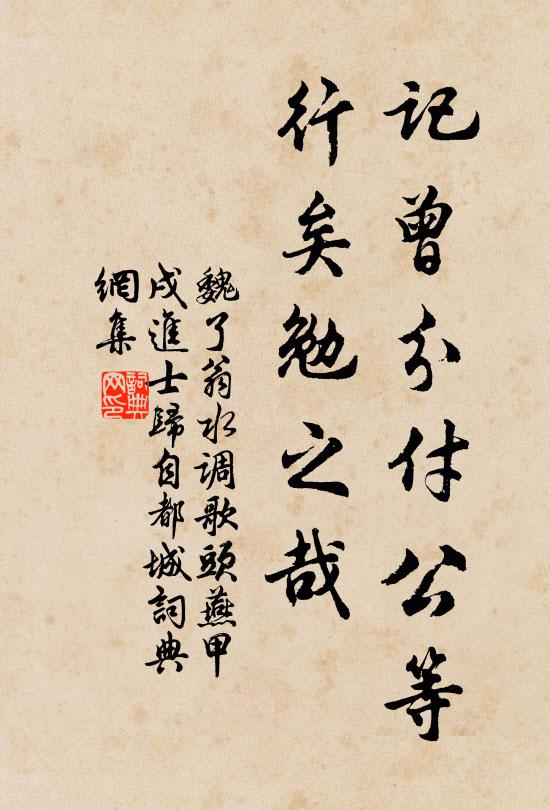 記曾分付公等
行矣勉之哉
魏了翁水调歌頭燕甲
戌進士歸自都城詞典
網集
詞典网印